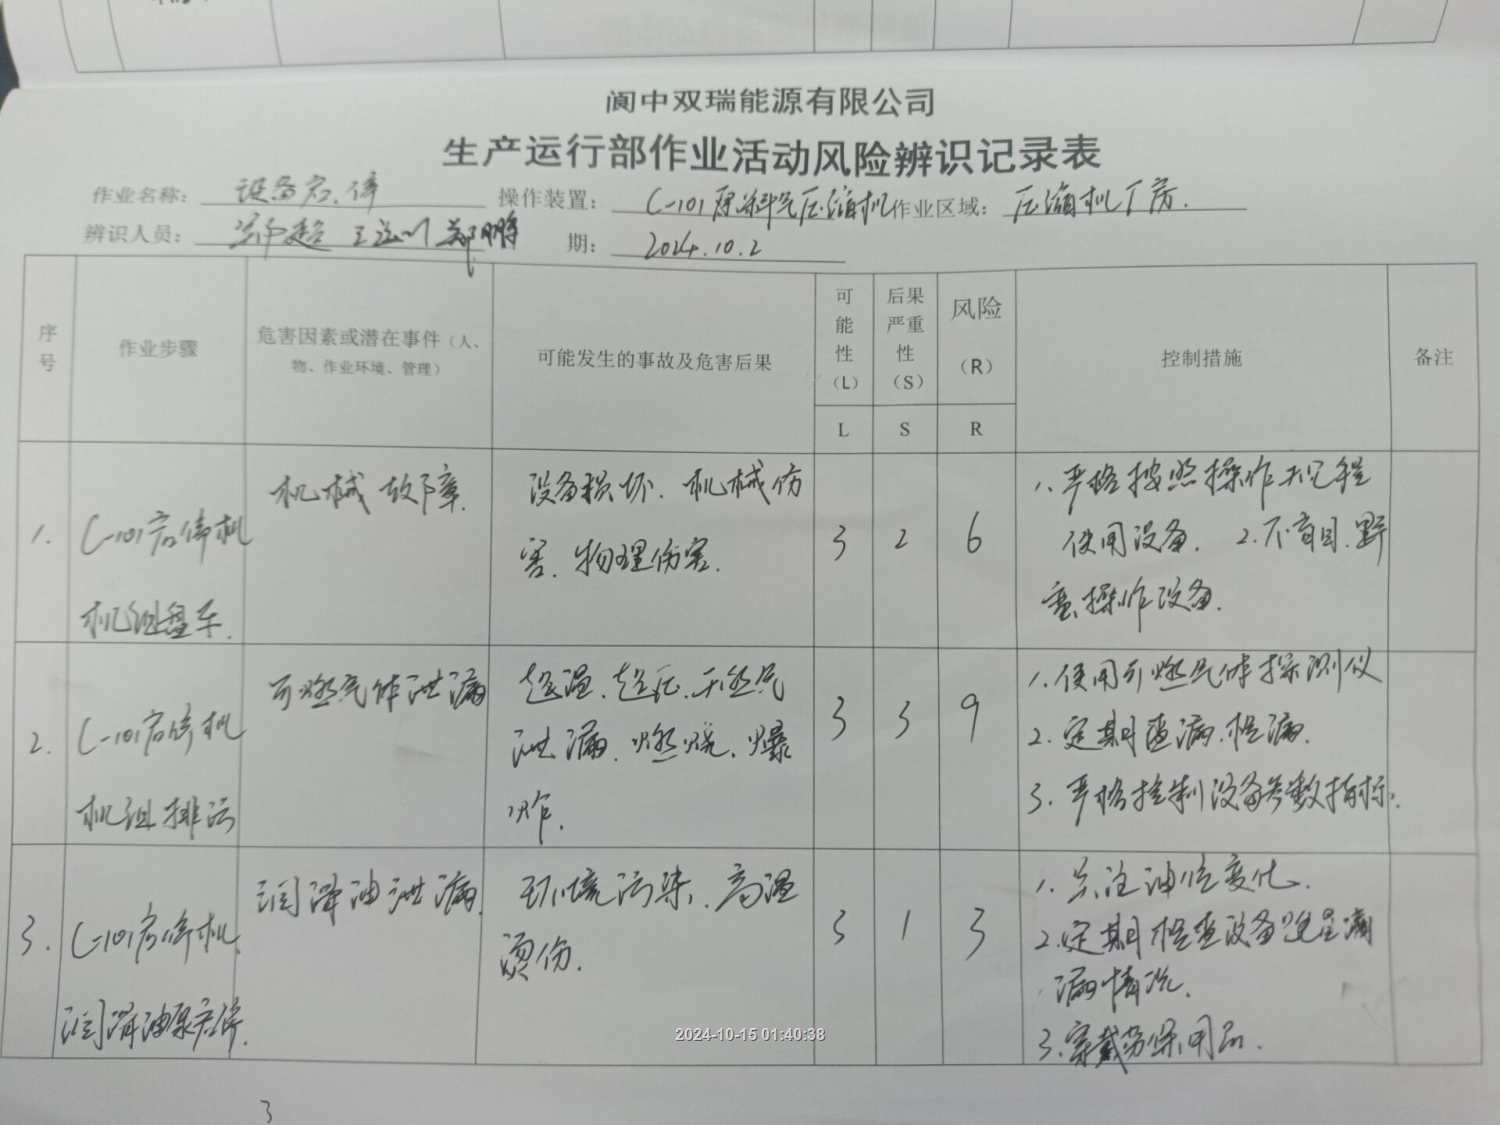 阆中双瑞能源有限公司
生产运行部作业活动风险辨识记录表
作业名称： 设备启、停 操作装置： C-101原料气压缩机 作业区域： 压缩机厂房.
辨识人员： 郑鹏 期： 2024.10.2
序号 作业步骤 危害因素或潜在事件（人、物、作业环境、管理） 可能发生的事故及危害后果 可能性（L） 后果严重性（S） 风险（R） 控制措施 备注
L S R
1. C-101启停机
机组盘车.
机械故障.
设备损坏、机械伤
害、物理伤害.
3 2 6
1.严格按照操作规程
使用设备. 2.不盲目、野
蛮操作设备.
2. C-101启停机
机组排污
可燃气体泄漏
超温、超压、天然气
泄漏、燃烧、爆
炸.
3 3 9
1.使用可燃气体探测仪
2.定期查漏、检漏.
3.严格控制设备参数指标.
3. C-101启停机.
润滑油泵启停.
润滑油泄漏.
环境污染、高温
烫伤.
3 1 3
1.关注油位变化.
2.定期检查设备跑冒滴
漏情况.
3.穿戴劳保用品.
2024-10-15 01:40:38
3